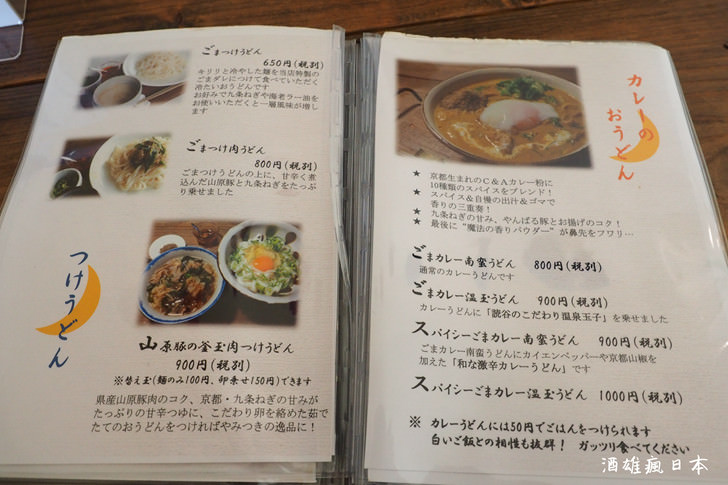 ごまつけうどん
650円(税別)
キリリと冷やした麺を当店特製の
ごまダレにつけて食べていただく
冷たいおうどんです
お好みで九条ねぎや海老ラー油を
お使いいただくと一層風味が増し
ます
ごまつけ肉うどん
800円(税別)
ごまつけうどんの上に、甘辛く煮
込んだ山原豚と九条ねぎをたっぷ
り乗せました
つけうどん
山原豚の釜玉肉つけうどん
900円(税別)
※替え玉(麺のみ100円、卵乗せ150円)できます
県産山原豚肉のコク、京都・九条ねぎの甘みが
たっぷりの甘辛つゆに、こだわり卵を絡めた茹で
たてのおうどんをつければやみつきの逸品に!
カレーの
おうどん
★ 京都生まれのC&Aカレー粉に
10種類のスパイスをブレンド!
★ スパイス&自慢の出汁&ゴマで
香りの三重奏!
★ 九条ねぎの甘み、やんばる豚とお揚げのコク!
★ 最後に“魔法の香りパウダー”が鼻先をフワリ…
ごまカレー南蛮うどん 800円(税別)
通常のカレーうどんです
ごまカレー温玉うどん 900円(税別)
カレーうどんに「読谷のこだわり温泉玉子」を乗せました
スパイシーごまカレー南蛮うどん 900円(税別)
ごまカレー南蛮うどんにカイエンペッパーや京都山椒
を加えた「和な激辛カレーうどん」です
スパイシーごまカレー温玉うどん 1000円(税別)
※ カレーうどんには50円でごはんをつけられます
白いご飯との相性も抜群! ガッツリ食べてください
酒雄瘋日本